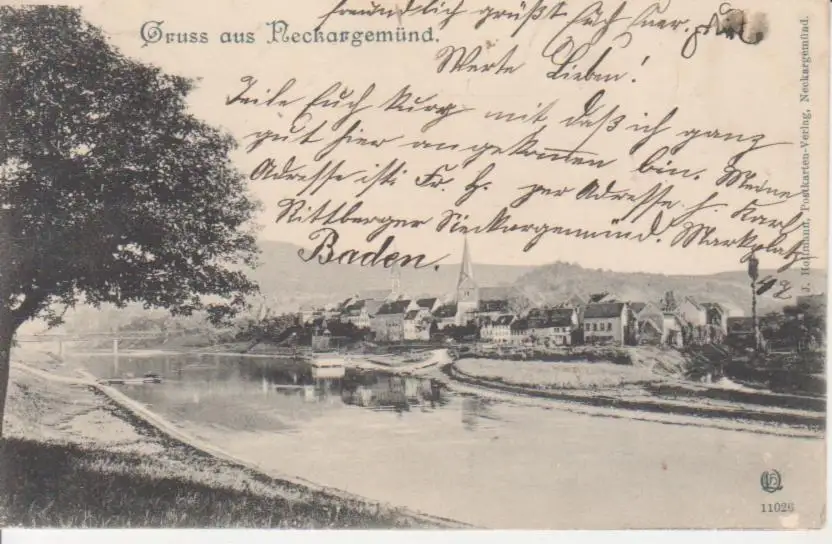 freundlich grüßt Euch Euer
Gruss aus Neckargemünd.
Werte Lieben!
Teile Euch kurz mit daß ich ganz
gut hier angekommen bin. Meine
Adresse ist: Fr. H. per Adresse H. Karl
Rittberger Neckargemünd. Marktplatz
Baden. 42
J. Hoffmann, Postkarten-Verlag, Neckargemünd.
11026